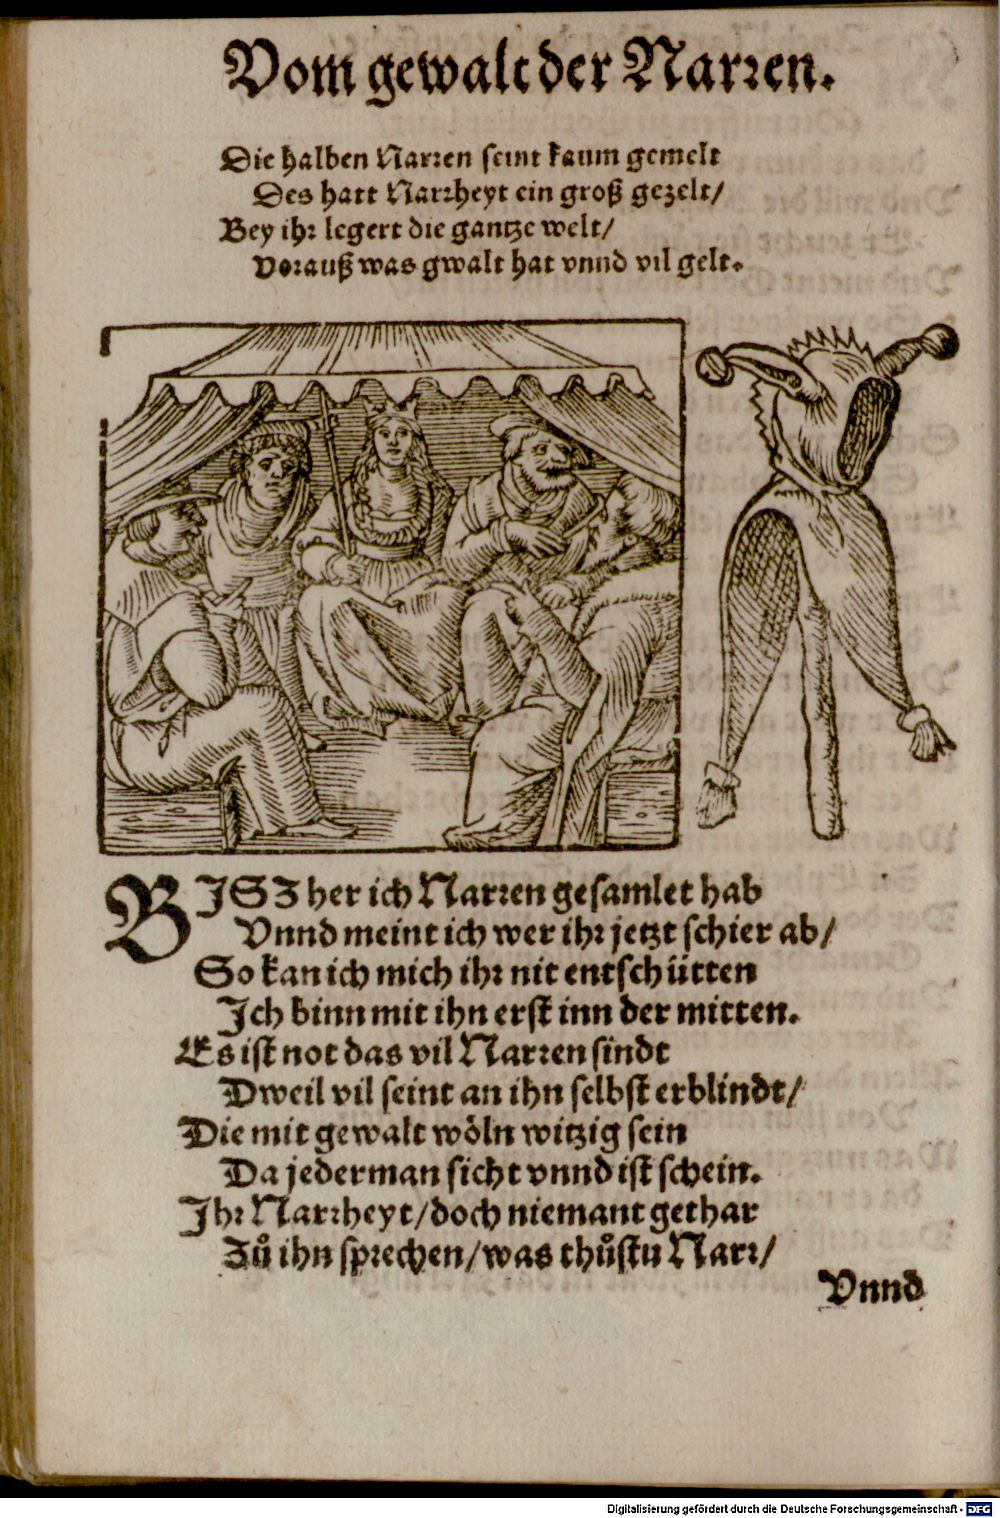 Vom gewalt der Narren.
Die halben Narren seint kaum gemelt
Des hatt Narrheyt ein groß gezelt/
Bey ihr legert die gantze welt/
Vorauß was gwalt hat vnnd vil gelt.
BISZ her ich Narren gesamlet hab
Vnnd meint ich wer ihr jetzt schier ab/
So kan ich mich ihr nit entschütten
Ich binn mit ihn erst inn der mitten.
Es ist not das vil Narren sindt
Dweil vil seint an ihn selbst erblindt/
Die mit gewalt wöln witzig sein
Da jederman sicht vnnd ist schein.
Ihr Narrheyt/doch niemant gethar
Zů ihn sprechen/was thůstu Narr/
Vnnd
Digitalisierung gefördert durch die Deutsche Forschungsgemeinschaft - DFG